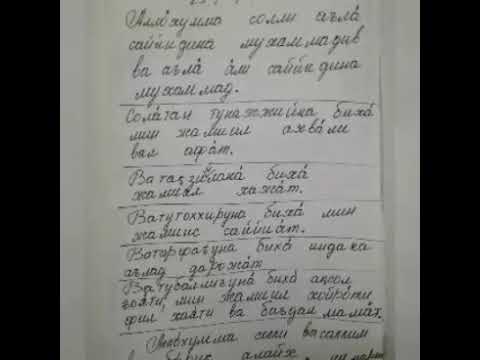 Аллохумма солли аъла́
саййидина мухаммадив
ва аъла́ а́ли саййидина
мухаммад.
Сола́тан тунажжийна биха́
мин жамиил ахва́ли
вал афа́т.
Ватақзилана́ биха́
жамиал хажа́т.
Ватутоххируна биха́ мин
жамиис саййиа́т.
Ватарфаъуна биха́ индака
аълад дарожа́т
Ватубаллиғуна́ биха́ ақсол
ғояти, мин жамиил хойро́ти
фил хаяти ва баъдал мама́т.
Аллохумма
алайх